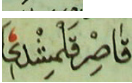 قَاصِرْ قَلْمِشْدِيْ